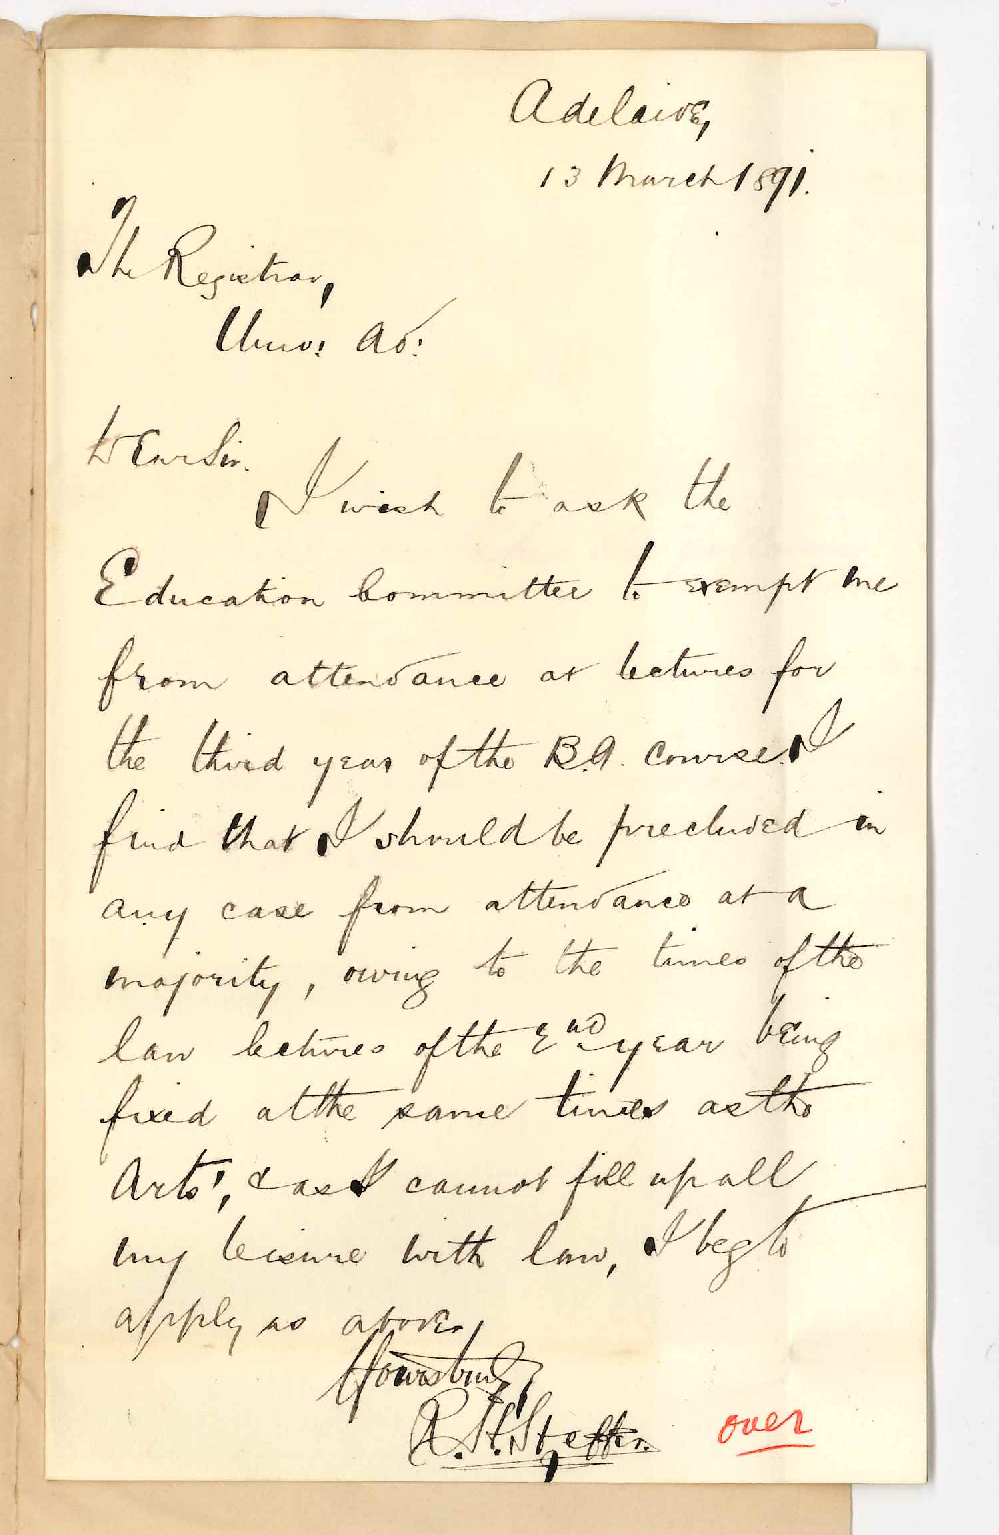 Adelaide,
13 March 1891.
The Registrar,
Univ: Ad:
Dear Sir.
I wish to ask the
Education Committee to exempt me
from attendance at lectures for
the third year of the B.A. course. I
find that I should be precluded in
any case from attendance at a
majority, owing to the times of the
law lectures of the 2nd year being
fixed at the same times as the
Arts', & as I cannot fill up all
my leisure with law, I beg to
apply as above,
Yours truly,
R. H.
over